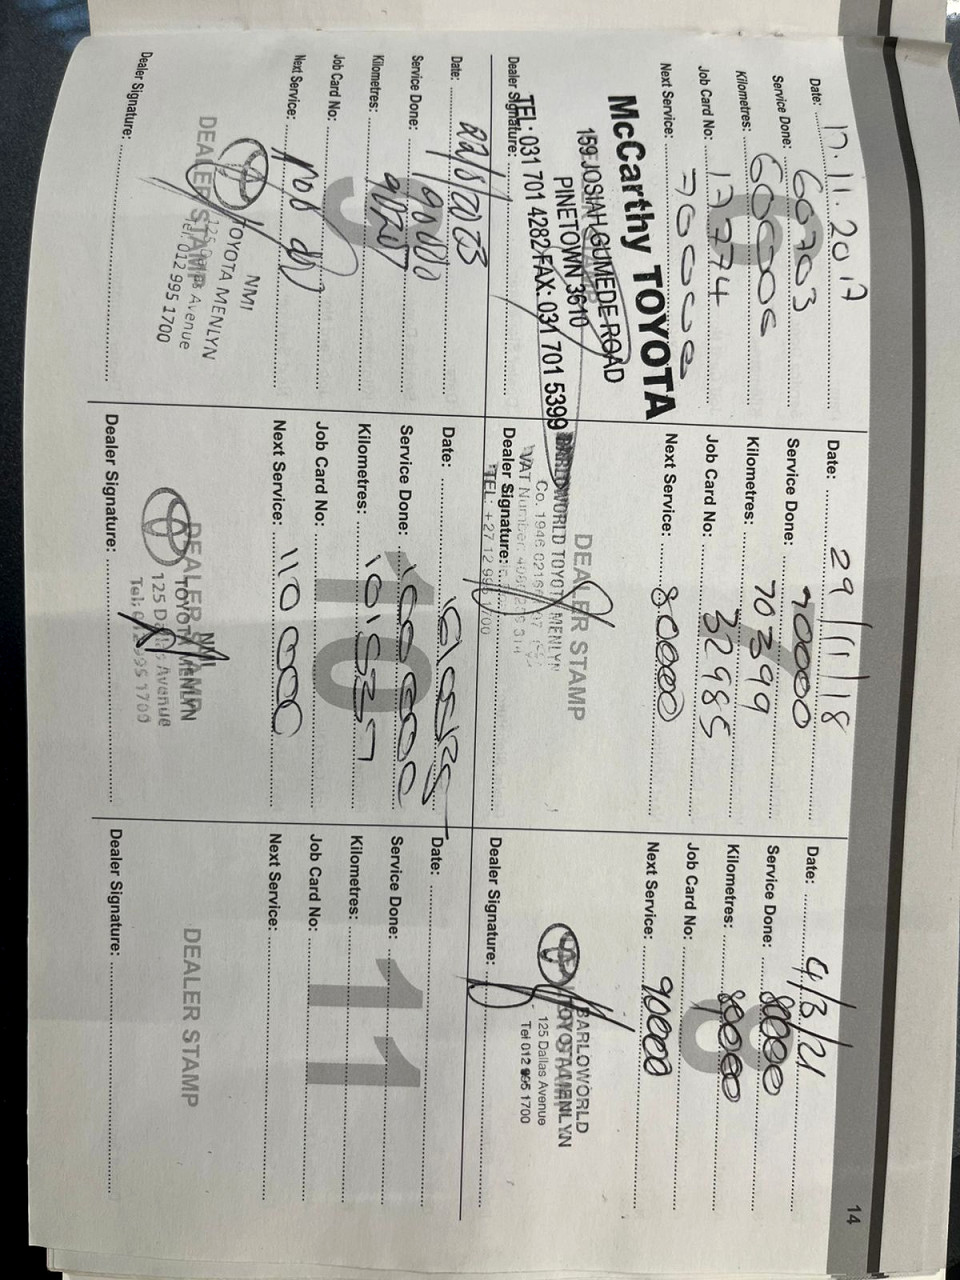 14
Date: 17.11.2017
Service Done: 60703
Kilometres: 60000
Job Card No: 17374
Next Service: 70000
McCarthy TOYOTA
159 JOSIAH GUMEDE ROAD
PINETOWN 3610
TEL: 031 701 4282 FAX: 031 701 5399
Dealer Signature:
7
Date: 29/11/18
Service Done: 70000
Kilometres: 70399
Job Card No: 32985
Next Service: 80000
DEALER STAMP
BARLOWORLD TOYOTA MENLYN
VAT Number
Dealer Signature:
8
Date: 4/3/21
Service Done: 80000
Kilometres: 80000
Job Card No:
Next Service: 90000
BARLOWORLD
TOYOTA MENLYN
125 Dallas Avenue
Tel 012 995 1700
Dealer Signature:
9
Date: 22/8/2023
Service Done: 90000
Kilometres: 90207
Job Card No:
Next Service:
NMI
TOYOTA MENLYN
DEALER STAMP
Avenue
Tel: 012 995 1700
Dealer Signature:
10
Date:
Service Done: 100 000
Kilometres: 101537
Job Card No:
Next Service: 110 000
DEALER STAMP
NMI
TOYOTA MENLYN
125 Dallas Avenue
Dealer Signature:
11
Date:
Service Done:
Kilometres:
Job Card No:
Next Service:
DEALER STAMP
Dealer Signature: